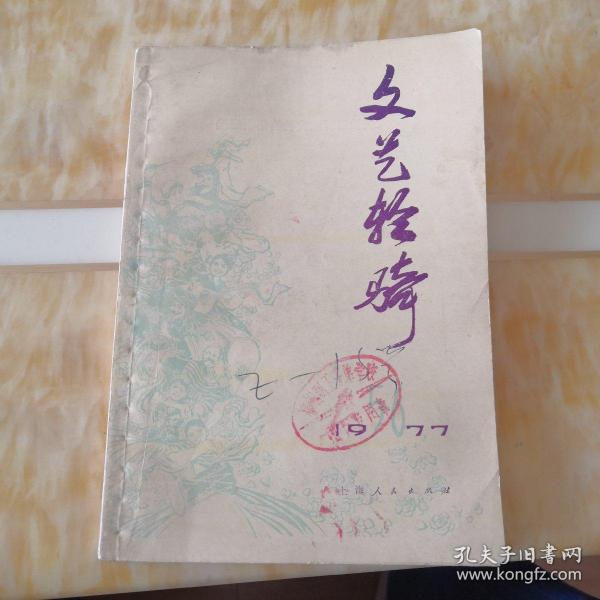 文艺轻骑
1977
上海人民出版社
孔夫子旧書网
www.kongfz.com